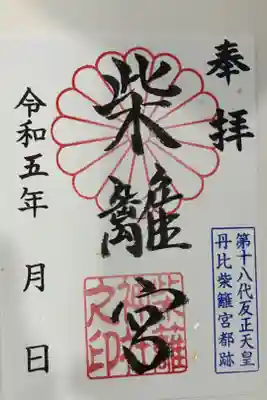 奉拝
第十八代反正天皇
丹比柴籬宮都跡
柴籬宮
柴籬
神社
之印
令和五年 月 日